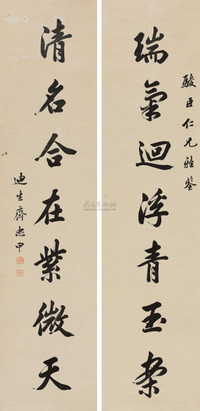 瑞氣迴浮青玉案
駿臣仁兄雅鑒
清名合在紫微天
迪生齊忠甲